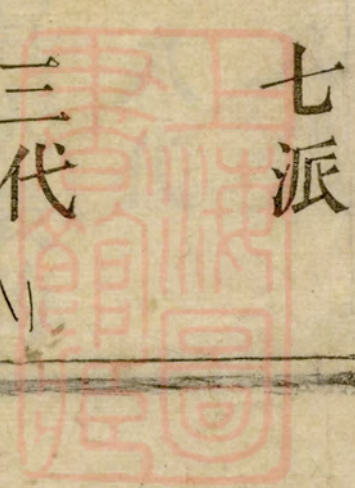 七派
三代
上海圖
書館藏